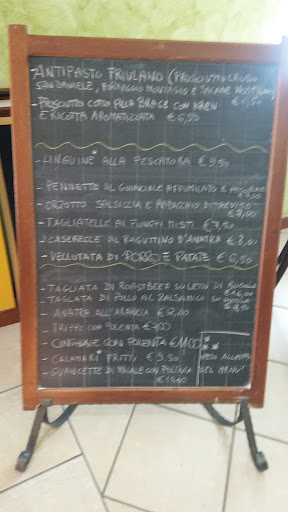 ANTIPASTO FRIULANO (PROSCIUTTO CRUDO
SAN DANIELE, FORMAGGIO MONTASIO E SALAME NOSTRANO)
- PROSCIUTTO COTTO ALLA BRACE CON KREN € 6,50
E RICOTTA AROMATIZZATA € 6,50
- LINGUINE* ALLA PESCATORA € 9,50
- PENNETTE AL GUANCIALE AFFUMICATO E
€ 7,00
- ORZOTTO SALSICCIA E RADICCHIO DI TREVISO
€ 7,00
- TAGLIATELLE AI FUNGHI MISTI € 7,50
- CASERECCE AL RAGUTTINO D'ANATRA € 8,00
- VELLUTATA DI PORRO E PATATE € 6,50
- TAGLIATA DI ROASTBEEF SU LETTO DI RUCOLA
- TAGLIATA DI POLLO AL BALSAMICO SU
- ANATRA ALL'ARANCIA € 12,00
- TRIPPE CON POLENTA € 7,00
- CINGHIALE CON POLENTA € 11,00
- CALAMARI* FRITTI € 9,50
- GUANCETTE DI MAIALE CON POLENTA
€ 10,00
* VEDI ALLERGENI
NEL MENU'